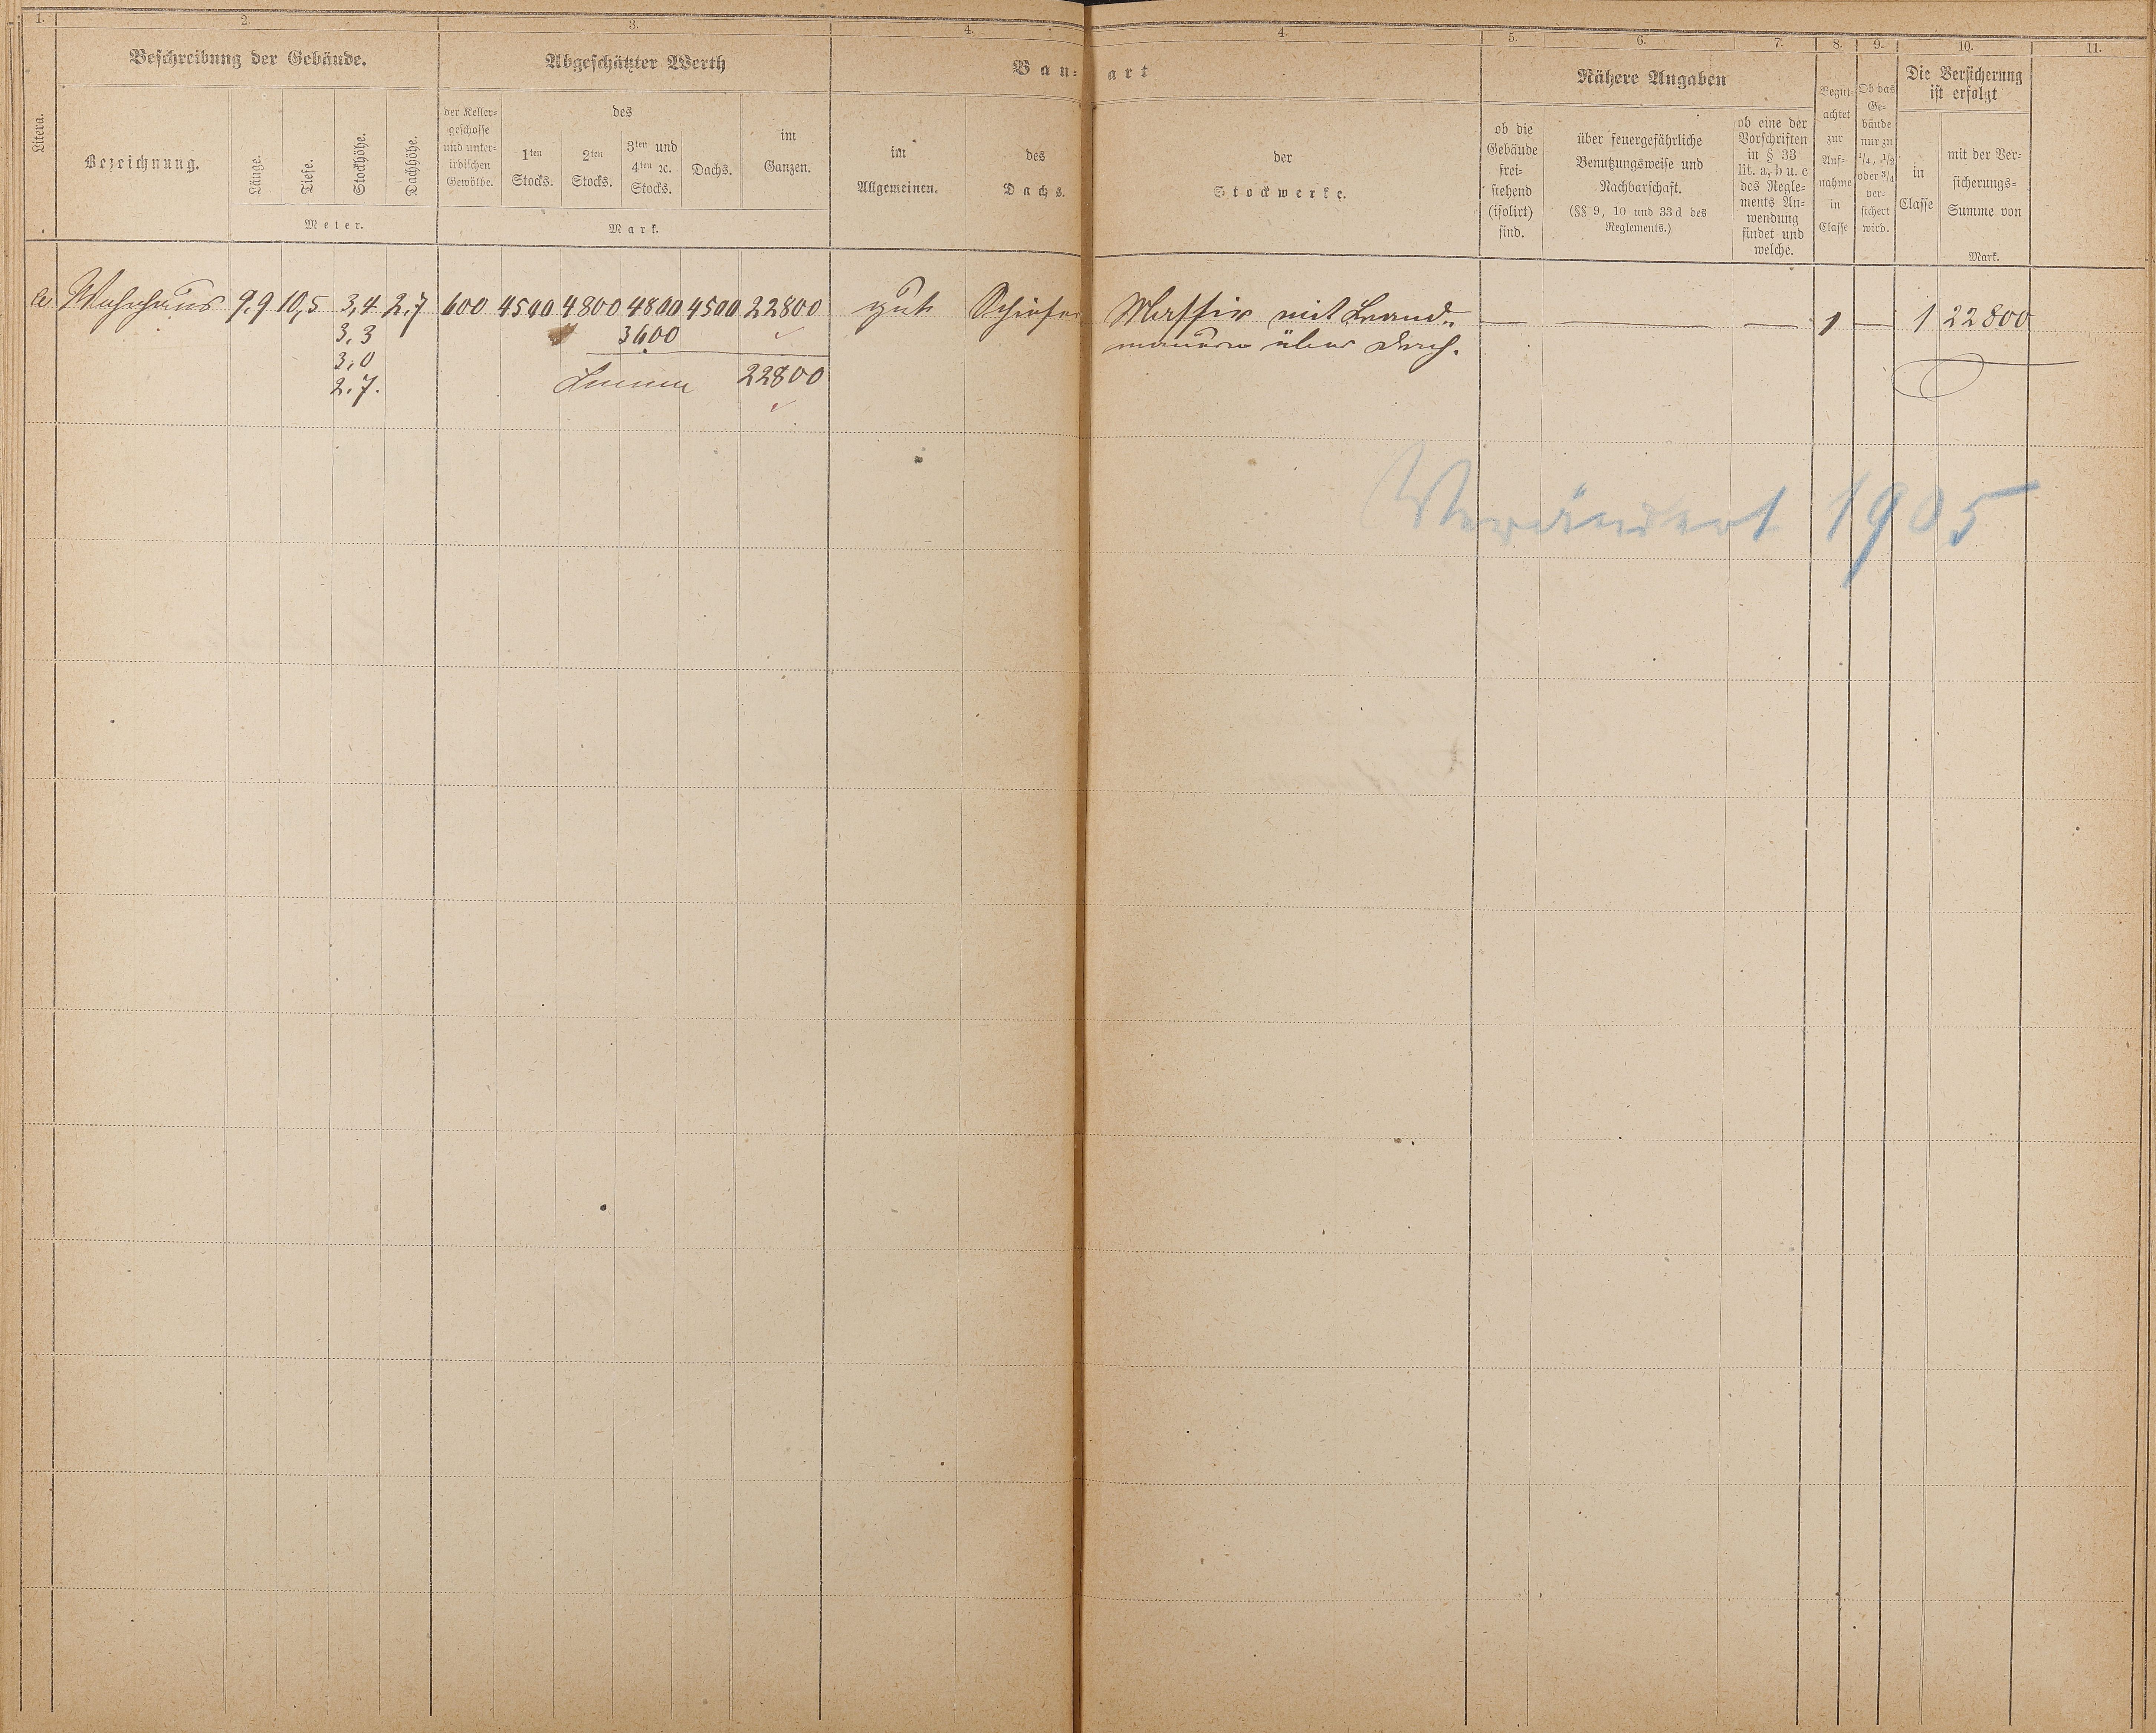 1. 2. 3. 4. 4. 5. 6. 7. 8. 9. 10. 11.
Litera.
Beschreibung der Gebäude.
Bezeichnung.
Länge.
Tiefe.
Stockhöhe.
Dachhöhe.
Meter.
Abgeschätzter Werth
der Keller-
geschosse
und unter-
irdischen
Gewölbe.
des
1ten
Stocks.
2ten
Stocks.
3ten und
4ten ꝛc.
Stocks.
Dachs.
im
Ganzen.
Mark.
Bau-art
im
Allgemeinen.
des
Dachs.
der
Stockwerke.
Nähere Angaben
ob die
Gebäude
frei-
stehend
(isolirt)
sind.
über feuergefährliche
Benutzungsweise und
Nachbarschaft.
(§§ 9, 10 und 33d des
Reglements.)
ob eine der
Vorschriften
in § 33
lit. a, b u. c
des Regle-
ments An-
wendung
findet und
welche.
Begut-
achtet
zur
Auf-
nahme
in
Classe
Ob das
Ge-
bäude
nur zu
1/4, 1/2
oder 3/4
ver-
sichert
wird.
Die Versicherung
ist erfolgt
in
Classe
mit der Ver-
sicherungs-
Summe von
Mark.
a. Wohnhaus 9,9 10,5 3,4 2,7 600 4500 4800 4800 4500 22800 gut Schiefer Massiv mit Brand- — — — 1 — 1 22800
3,3 3600 mauern über Dach.
3,0
2,7. Summa 22800
Verändert 1905